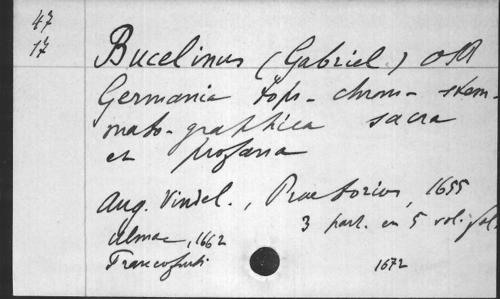 47
17
Bucelinus (Gabriel)
Germania top - chron - stem-
mato-graphica sacra
et profana
Aug. Vindel., Praetorius, 1655
Ulmae, 1662 3 part. en 5 vol. fol.
Francofurti 1672